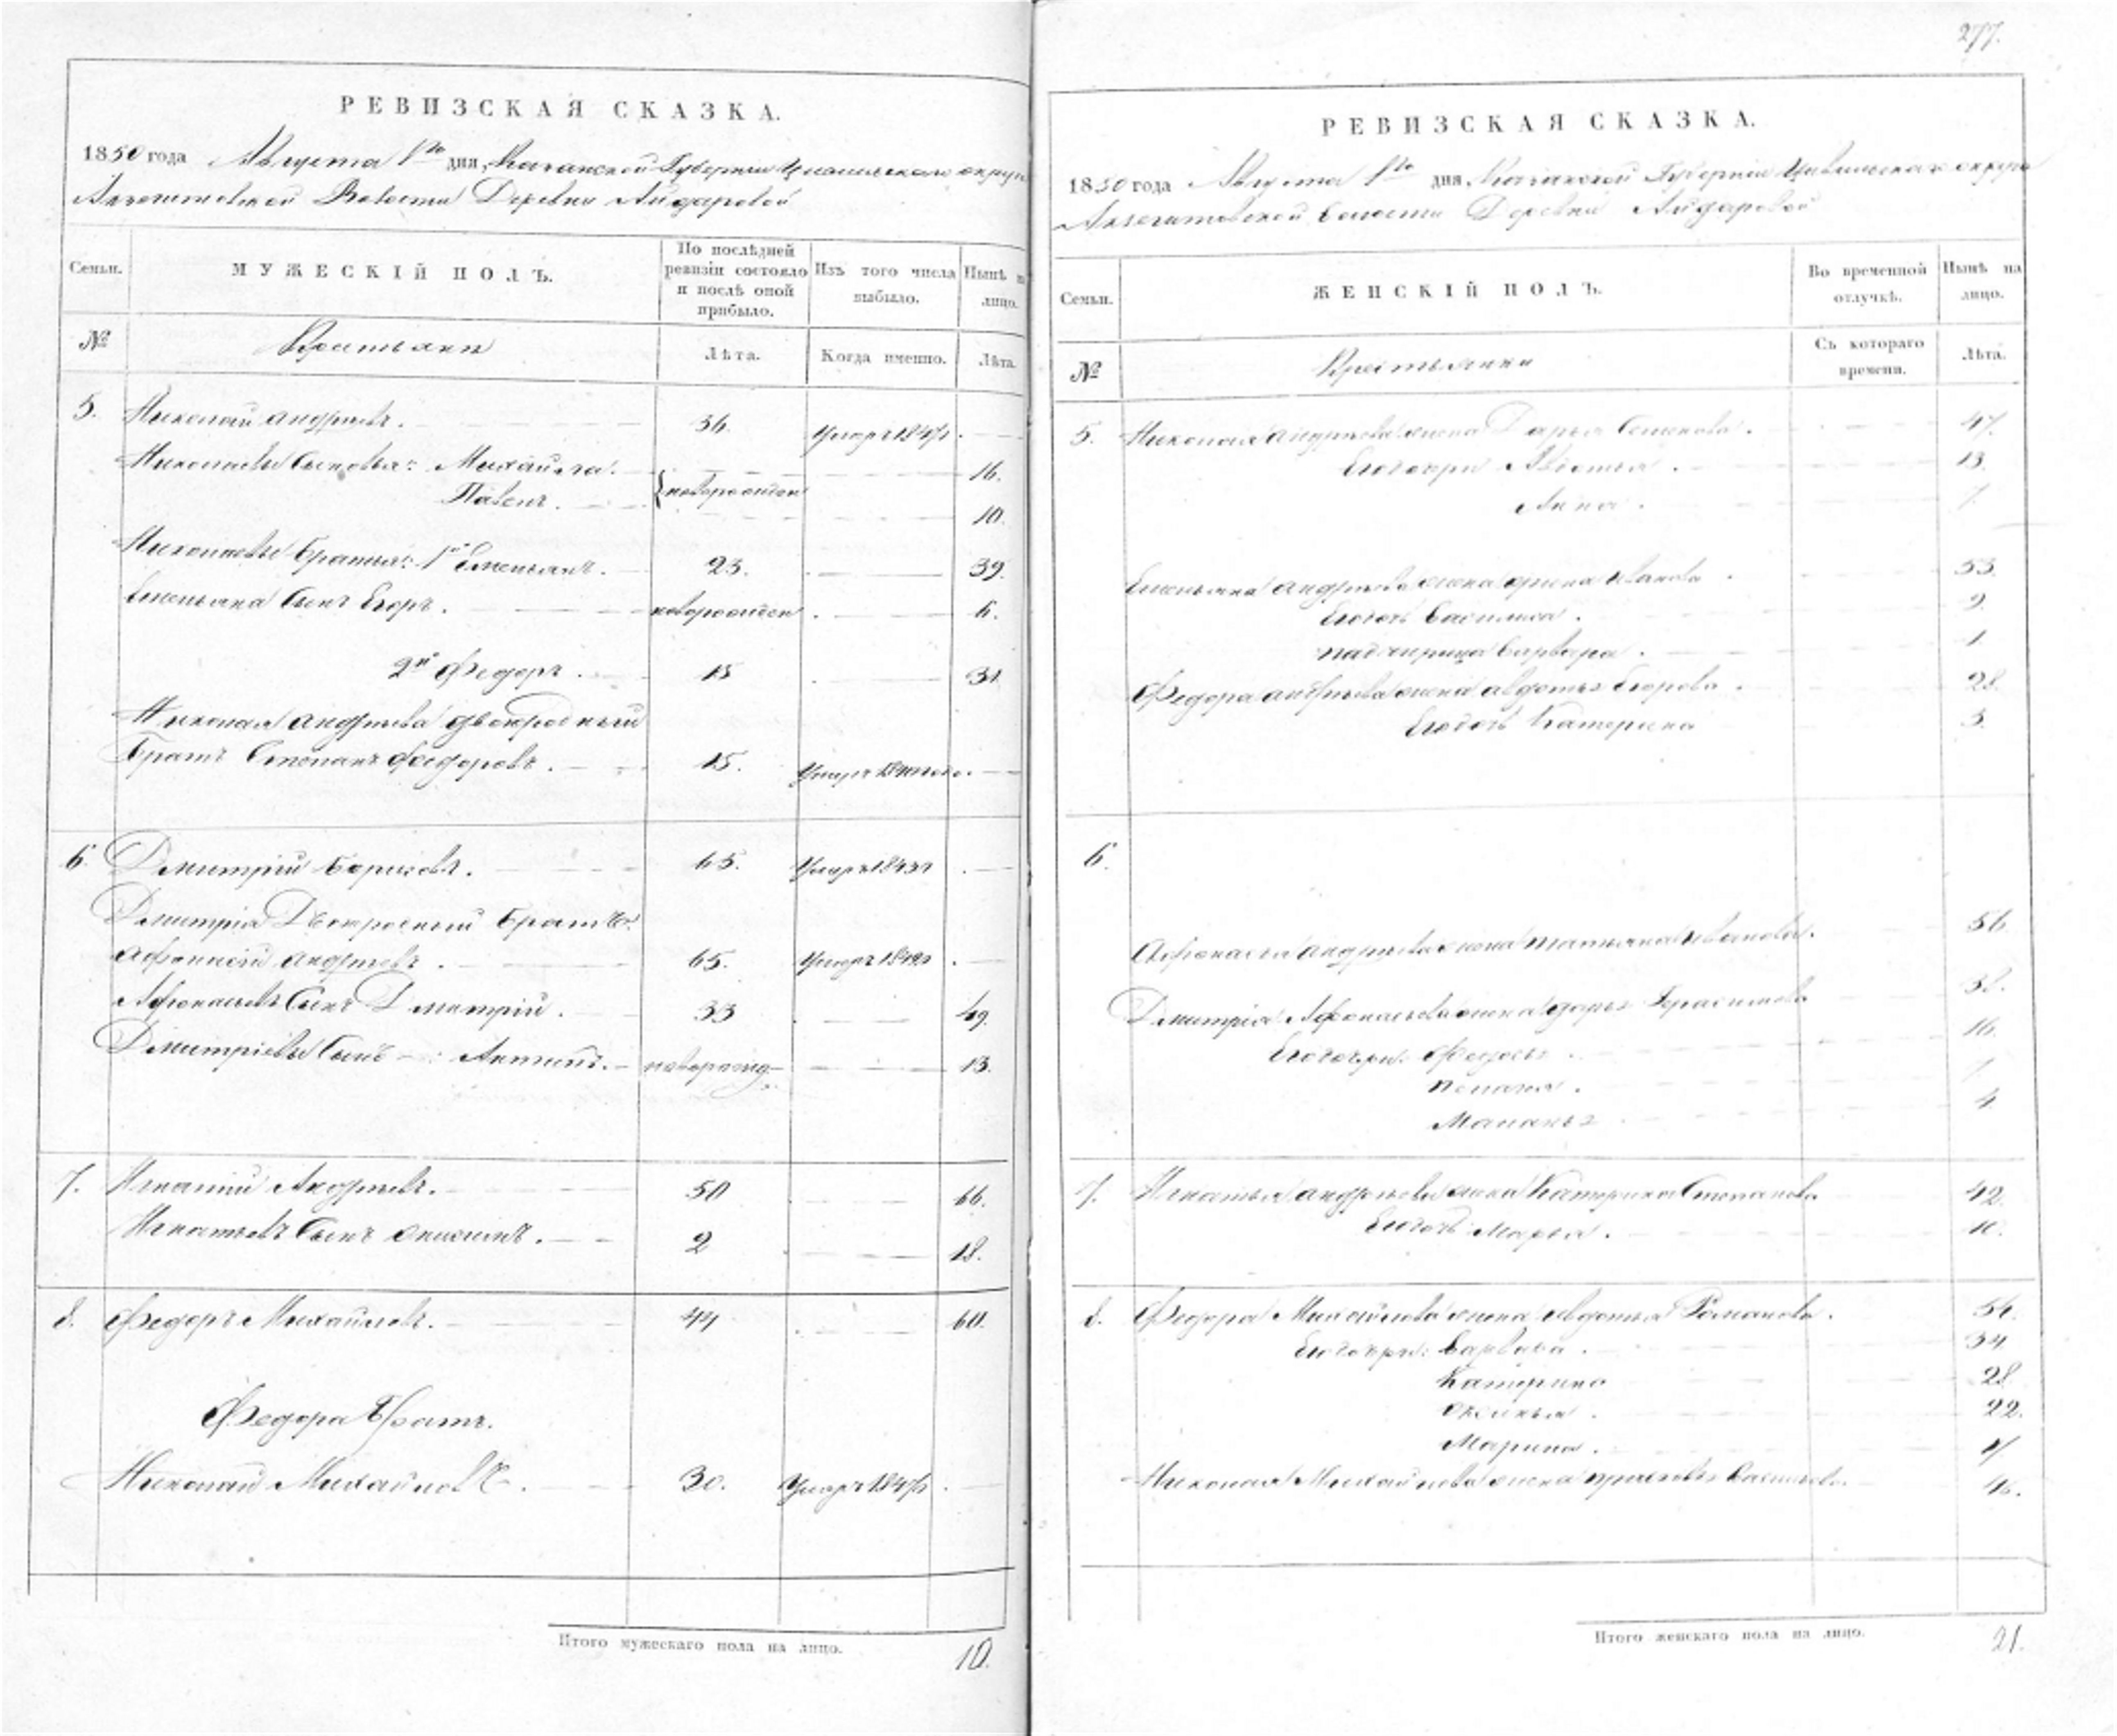 РЕВИЗСКАЯ СКАЗКА.
1850 года Августа 1го дня, Казанской Губернии Цивильскаго округа
Волости Деревни Айдаровой
Семьи.
МУЖЕСКІЙ ПОЛЪ.
По послѣдней ревизіи состояло и послѣ оной прибыло.
Изъ того числа выбыло.
Нынѣ на лицо.
№
Крестьяне
Лѣта.
Когда именно.
Лѣта.
5. Николай Андреевъ. 36. Умеръ
Николаевы Сыновья: Михайла. 16.
Павелъ. новорожден 10.
Николаевы братья: 1й Емельянъ. 23. 39.
Емельяна Сынъ Егоръ. новорожден 6.
2й Федоръ. 15 31
Николая Андреева двоюродный
братъ Степанъ Федоровъ. 15. Умеръ
6. Дмитрій Борисовъ. 65. Умеръ 1843
Дмитрія Двоюродный братъ
Афонасій Андреевъ. 65. Умеръ
Афонасьевъ Сынъ Дмитрій. 33 49.
Дмитріевы Сынъ: Антипъ. 13.
7. Игнатій Андреевъ. 50 66.
Игнатьевъ Сынъ Онисимъ. 2 18.
8. Федоръ Михайловъ. 44 60.
Федора братъ.
Николай Михайловъ. 30. Умеръ
Итого мужескаго пола на лицо. 10.
277.
РЕВИЗСКАЯ СКАЗКА.
1850 года Августа 1го дня, Казанской Губерніи Цивильскаго округа
Волости Деревни Айдаровой
Семьи.
ЖЕНСКІЙ ПОЛЪ.
Во временной отлучкѣ.
Нынѣ на лицо.
№
Крестьянки
Съ котораго времени.
Лѣта.
5. Николая Андреева жена Дарья Семенова. 47.
Его дочери 13.
Анна.
Емельяна Андреева жена Ирина Иванова 53.
Его дочь Василиса. 9.
падчерица Варвара.
Федора Андреева жена Авдотья Егорова. 28.
Его дочь Катерина 3.
6.
Афонасья Андреева жена Татьяна Иванова. 56
Дмитрія Афонасьева жена Дарья Герасимова 38.
Его дочери: Федосья 16.
Пелагея.
Маланья 4
7. Игнатья Андреева жена Катерина Степанова 42.
Его дочь Марья. 10.
8. Федора Михайлова жена Авдотья Романова.
Его дочери: Варвара. 34
Катерина 28
Оксинья. 22.
Марина.
Николая Михайлова жена Прасковья Васильева. 46.
Итого женскаго пола на лицо. 21.